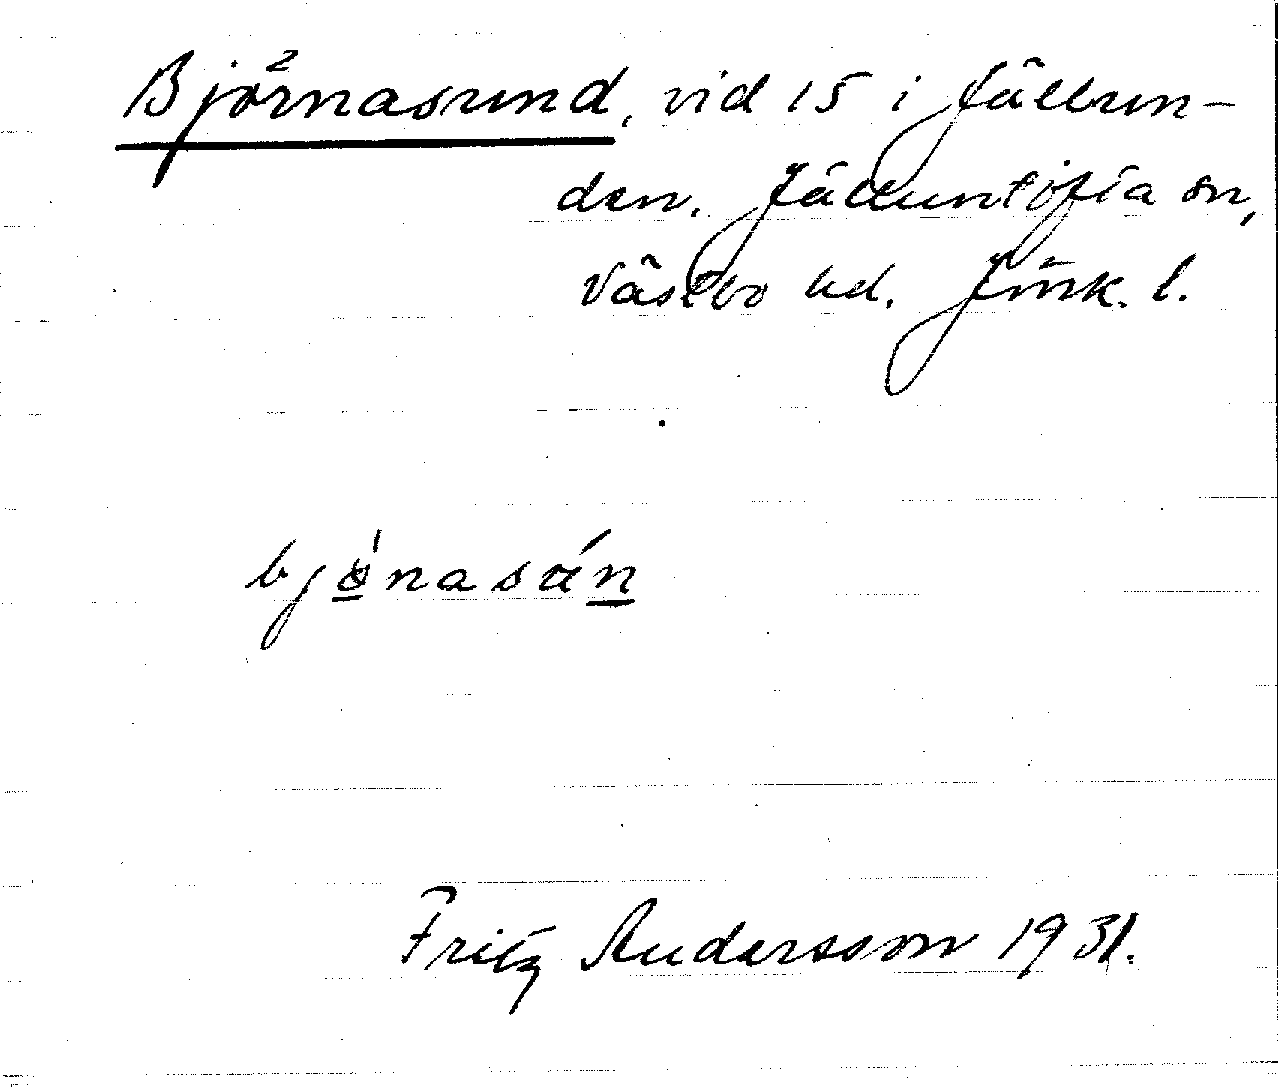 Björnasund, vid 15 i Fållun-
den. Fålluntofta sn,
Västbo hd. Jönk. l.
bjönasán
Fritz Andersson 1931.